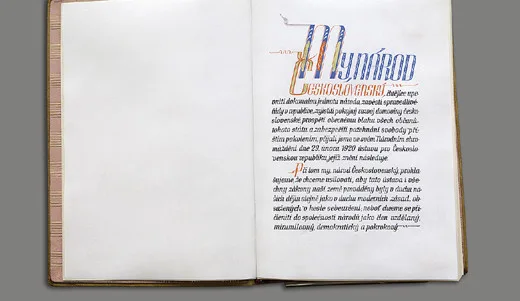 My, NÁROD
ČESKOSLOVENSKÝ, chtějíce upe-
vniti dokonalou jednotu národa, zavésti spravedlivé
řády v republice, zajistiti pokojný rozvoj domoviny česko
slovenské, prospěti obecnému blahu všech občanů
tohoto státu a zabezpečiti požehnání svobody pří-
štím pokolením, přijali jsme ve svém Národním shro-
máždění dne 29. února 1920 ústavu pro Českoslo-
venskou republiku, jejíž znění následuje.
Při tom my, národ Československý, prohla-
šujeme, že chceme usilovati, aby tato ústava i vše-
chny zákony naší země prováděny byly v duchu na-
šich dějin stejně jako v duchu moderních zásad, ob-
sažených v hesle sebeurčení, neboť chceme se při-
členiti do společnosti národů jako člen vzdělaný,
mírumilovný, demokratický a pokrokový